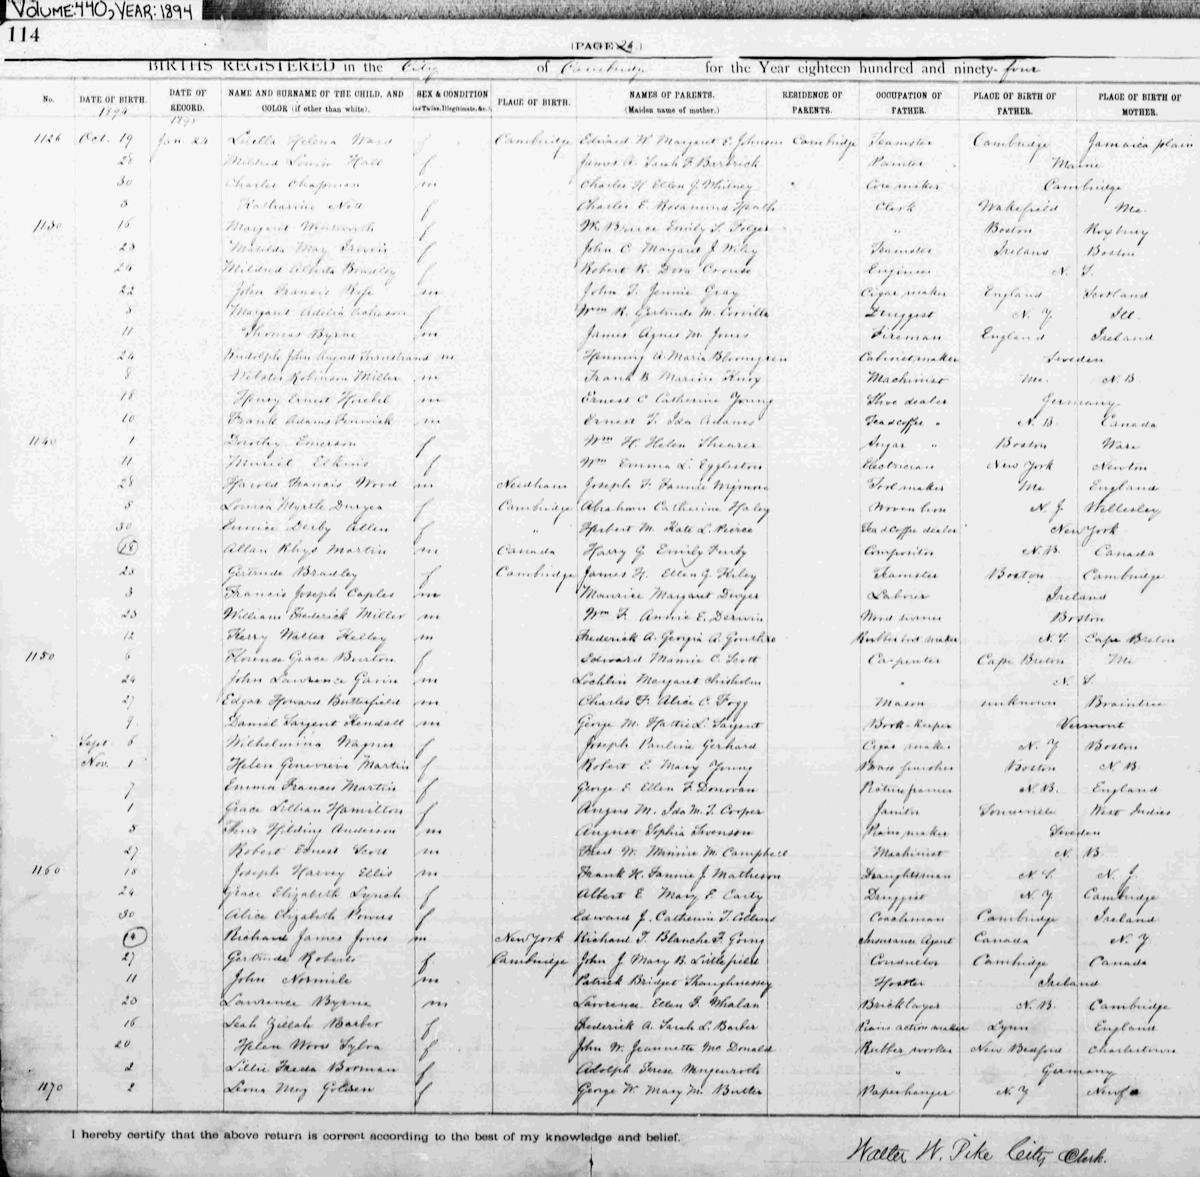 VOLUME:440, YEAR:1894
114
(PAGE 26.)
BIRTHS REGISTERED in the City of Cambridge for the Year eighteen hundred and ninety-four
No. DATE OF BIRTH. DATE OF RECORD. NAME AND SURNAME OF THE CHILD, AND COLOR (if other than white). SEX & CONDITION (as Twins, Illegitimate, &c.) PLACE OF BIRTH. NAMES OF PARENTS. (Maiden name of mother.) RESIDENCE OF PARENTS. OCCUPATION OF FATHER. PLACE OF BIRTH OF FATHER. PLACE OF BIRTH OF MOTHER.
1894 1895
1126 Oct. 19 Jan 24 Luella Helena Ward f Cambridge Edward W. Margaret E. Johnson Cambridge Teamster Cambridge Jamaica plain
28 Mildred Louise Hall f James A. Sarah F. Painter Maine
30 Charles Chapman m Charles H. Ellen J. Whitney " Core maker Cambridge
3 Katharine f Charles E. Rosamund Heath Clerk Wakefield Me.
1130 16 Margaret Wentworth f W. Bruce Emily L. Folger " Boston Roxbury
23 Matilda May f John C. Margaret J. Wiley Teamster Ireland Boston
24 Mildred Bradley f Robert R. Dora Crouse Engineer N. S.
22 John Francis m John T. Jennie Gray Cigar maker England Scotland
5 Margaret f Wm R. Gertrude M. Druggist N. Y. Ill.
11 Thomas Byrne m James Agnes M. Jones Fireman England Ireland
24 Rudolph John m Henning A. Maria Blomgren Cabinetmaker Sweden
8 Webster Robinson Miller m Frank B Marion King Machinist Me. N. B.
18 Henry Ernest m Ernest C. Catherine Young Shoe dealer Germany
10 Frank Adams Fenwick m Ernest T. Ida Adams Tea & coffee " N. B. Canada
1140 1 Dorothy Emerson f Wm H. Helen Shearer Sugar " Boston Ware
11 Muriel Elkins f Wm Emma L. Eggleston Electrician New York Newton
28 Harold Francis Wood m Needham Joseph F. Fannie Tool maker Me England
5 Louisa Myrtle Duryea f Cambridge Abraham Catherine Haley N. J. Wellesley
30 Eunice Derby Allen f " Herbert M. Kate L. Pierce Tea & Coffee dealer New York
15 Allan Rhys Martin m Canada Harry G. Emily Compositor N. B. Canada
25 Gertrude Bradley f Cambridge James H. Ellen J. Kiley Teamster Boston Cambridge
3 Francis Joseph Caples m Maurice Margaret Dwyer Laborer Ireland
23 William Frederick Miller m Wm F. Annie E. Boston
12 Walter Kelley m Frederick A. Georgia A. Rubber boot maker N. S. Cape Breton
1150 6 Florence Grace Burton f Edward Mamie C. Scott Carpenter Cape Breton Me
24 John Lawrence Gavin m Lochlin Margaret Chisholm " N. S.
27 Edgar Howard Butterfield m Charles F. Alice C. Fogg Mason unknown Braintree
9 Daniel Sargent Kendall m George M. Hattie L. Sargent Book-keeper Vermont
Sept. 6 Wilhelmina Wagner f Joseph Paulina Gerhard Cigar maker N. Y Boston
Nov. 1 Helen Genevieve Martin f Robert E. Mary Young Brass finisher Boston N. B.
7 Emma Frances Martin f George E. Ellen F. Donovan Picture frames N. B. England
1 Grace Lillian Hamilton f Angus M. Ida M. T. Cooper Janitor Somerville West Indies
5 Hilding Anderson m August Sophia Swenson Piano maker Sweden
27 Robert Ernest Scott m Fred W. Minnie M. Campbell Machinist N. B.
1160 18 Joseph Harvey Ellis m Frank H. Fannie J. Matheson Draughtsman N. S. N. J.
24 Grace Elizabeth Lynch f Albert E Mary E. Carty Druggist N. Y Cambridge
30 Alice Elizabeth Powers f Edward J. Catherine T. Collins Coachman Cambridge Ireland
9 Richard James Jones m New York Richard T. Blanche F. Insurance Agent Canada N. Y.
27 Gertrude Roberts f Cambridge John J. Mary B. Littlefield Conductor Cambridge Canada
11 John Normile m Patrick Bridget Shaughnessy Hostler Ireland
20 Lawrence Byrne m Lawrence Ellen F. Whalan Bricklayer N. B. Cambridge
16 Leah Zillah Barber f Frederick A. Sarah L. Barber Piano action maker Lynn England
20 Helen Wood Sylva f John W. Jeannette Mc Donald Rubber worker New Bedford Charlestown
2 Lillie Freda Borman f Adolph Terese " Germany
1170 2 Leona May Golden f George W. Mary M. Butler Paperhanger N. Y
I hereby certify that the above return is correct according to the best of my knowledge and belief.
Walter W. Pike City Clerk.